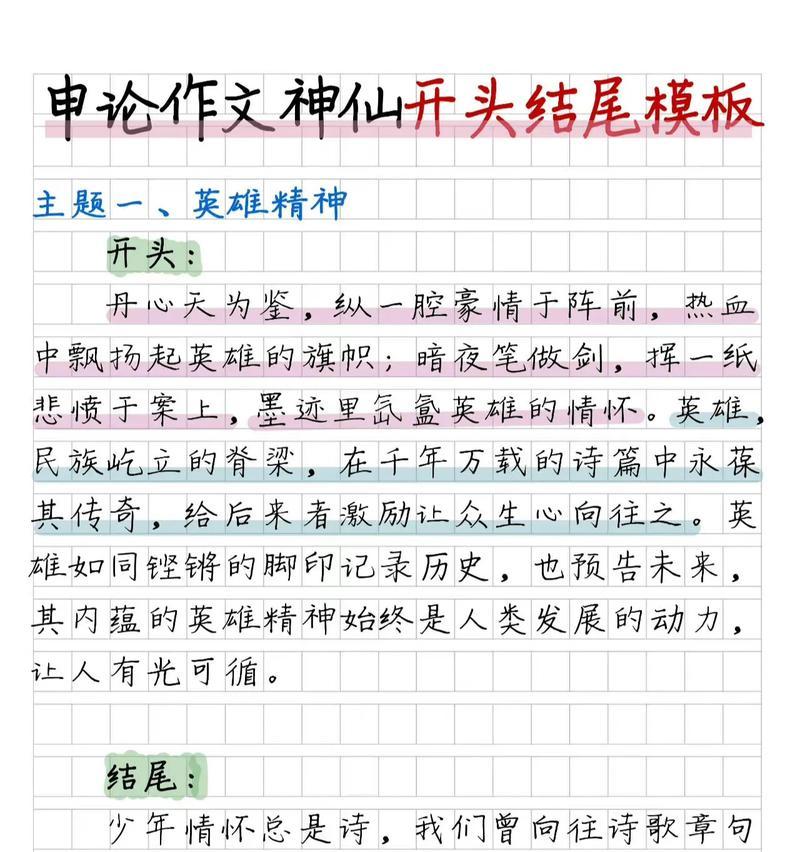 申论作文神仙开头结尾模板
主题一、英雄精神
开头:
丹心天为鉴，纵一腔豪情于阵前，热血
中飘扬起英雄的旗帜；暗夜笔做剑，挥一纸
悲愤于案上，墨迹里氤氲英雄的情怀。英雄，
民族屹立的脊梁，在千年万载的诗篇中永葆
其传奇，给后来者激励让众生心向往之。英
雄如同铿锵的脚印记录历史，也预告未来，
其内蕴的英雄精神始终是人类发展的动力，
让人有光可循。
结尾:
少年情怀总是诗，我们曾向往诗歌章句